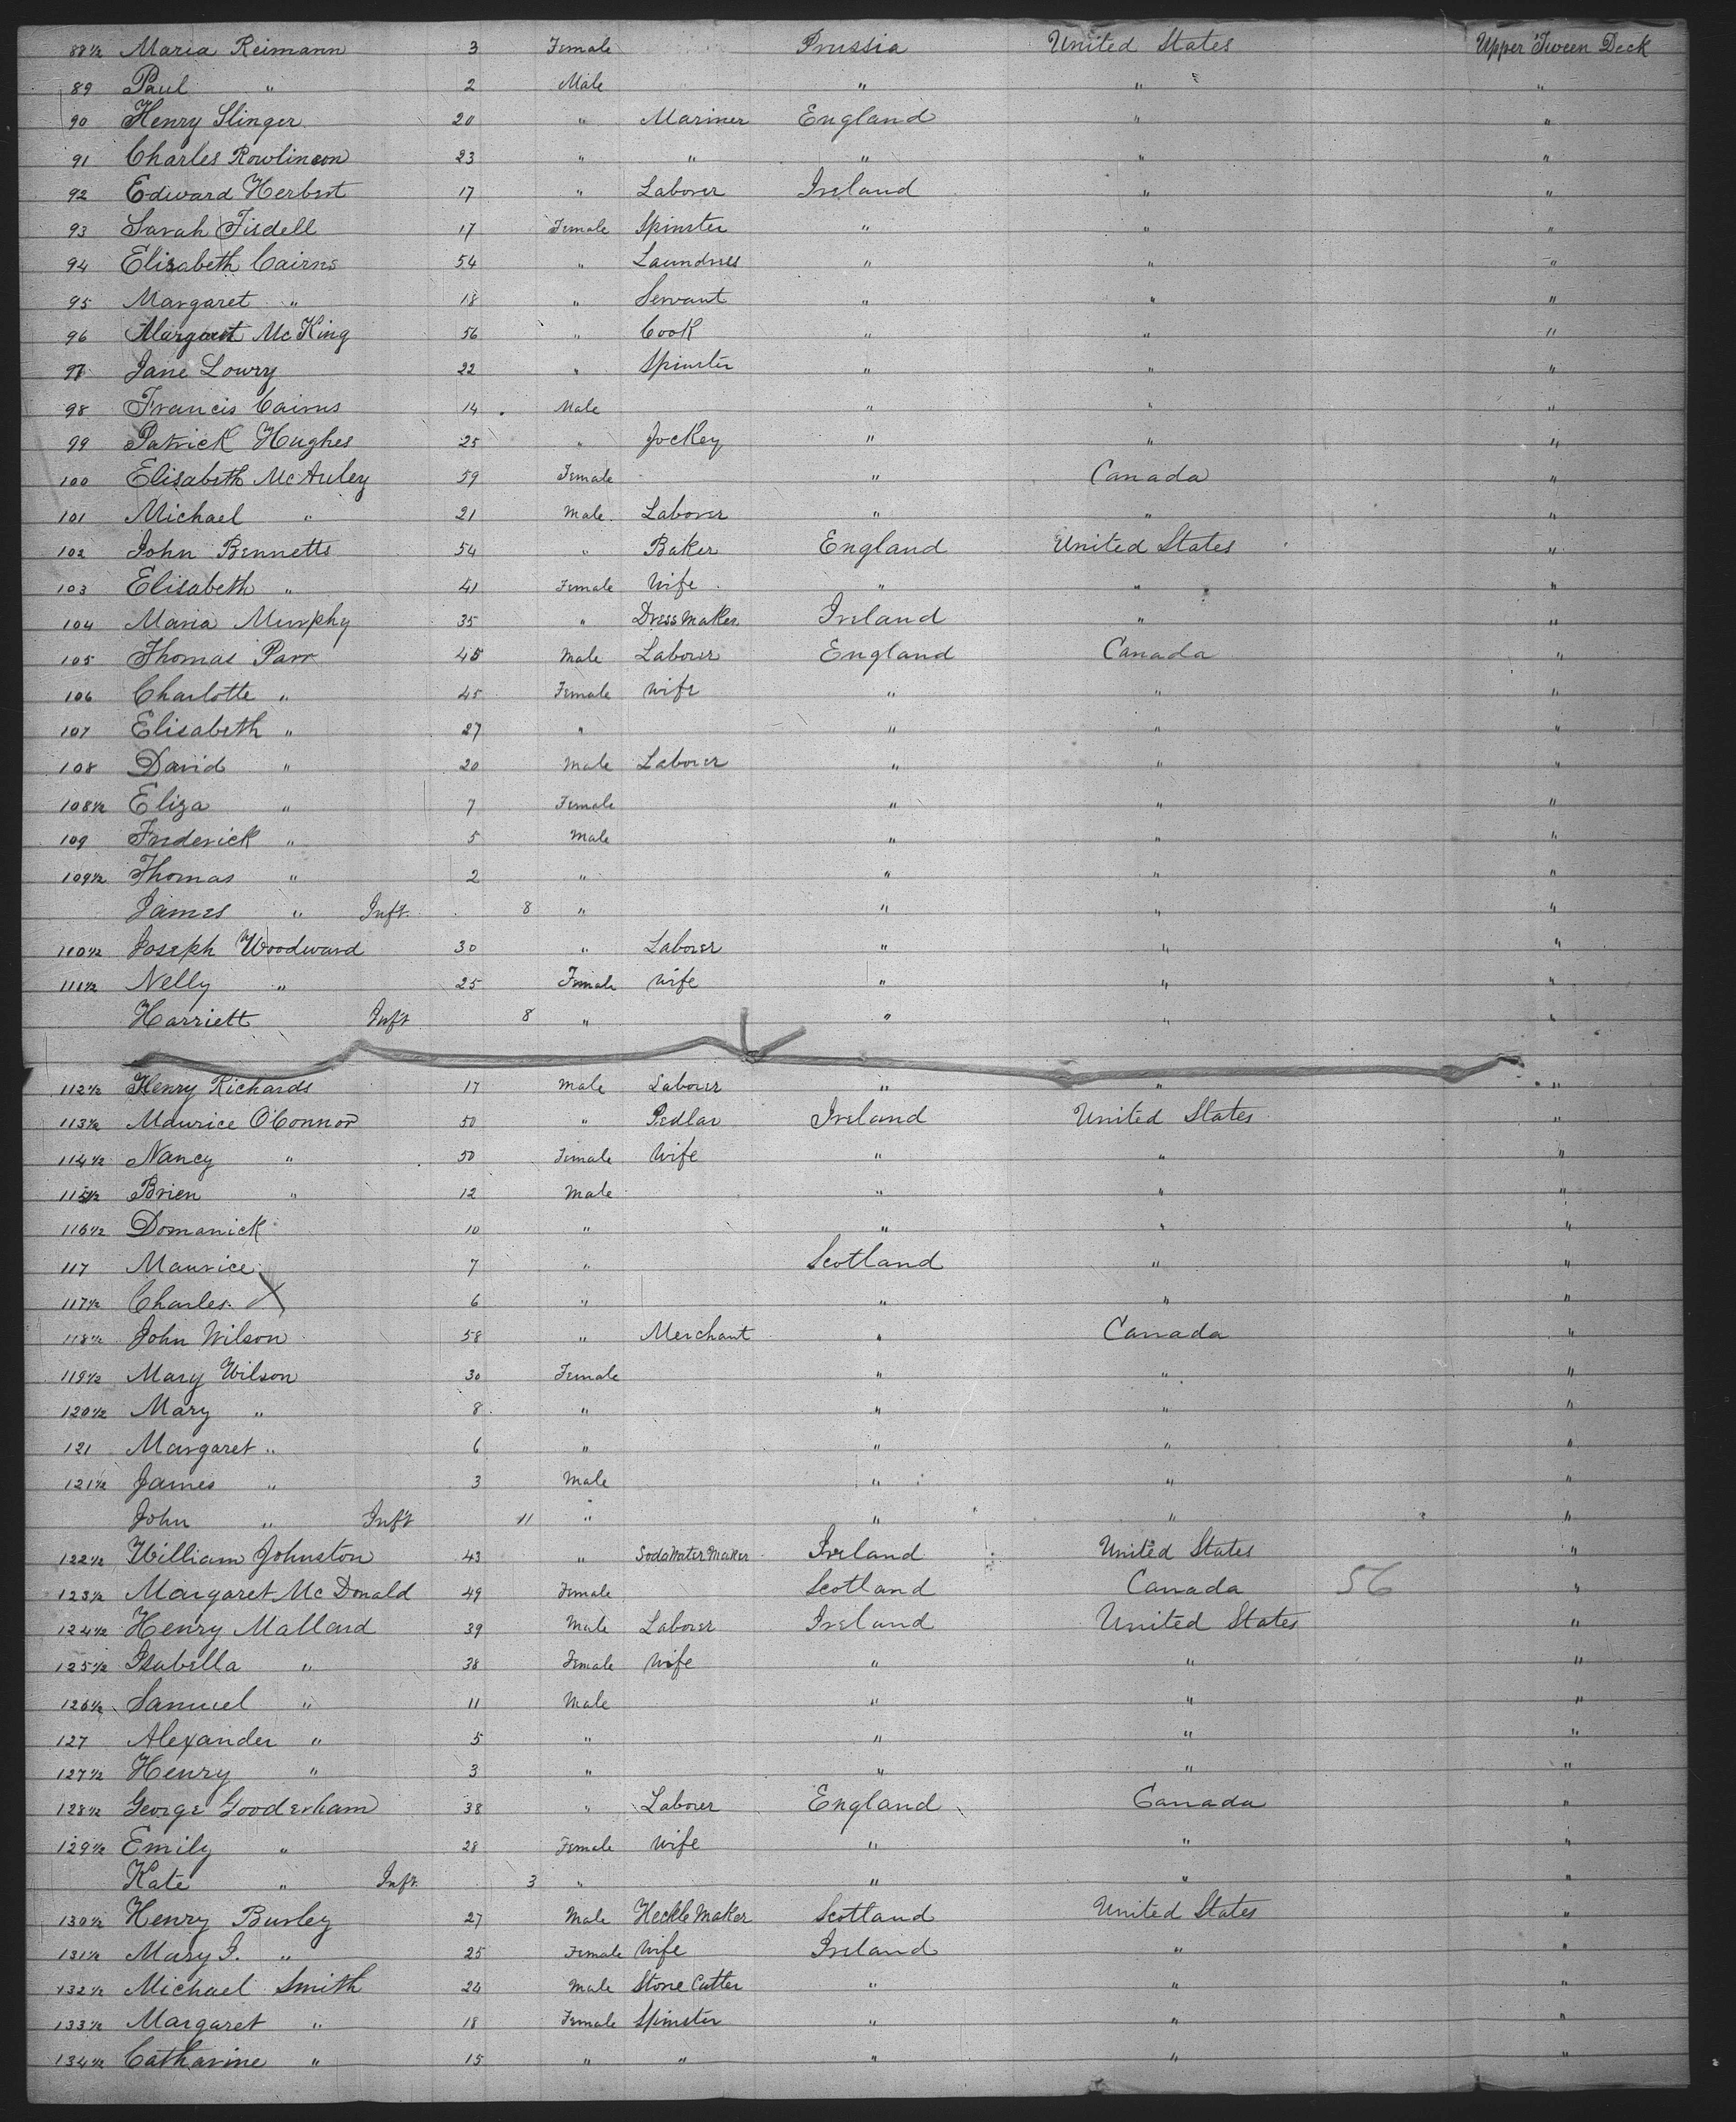 88½ Maria Reimann 3 Female Prussia United States Upper 'Tween Deck
89 Paul " 2 Male " " "
90 Henry Slinger 20 " Mariner England " "
91 Charles Rowlinson 23 " " " " "
92 Edward Herbert 17 " Laborer Ireland " "
93 Sarah Tisdell 17 Female Spinster " " "
94 Elisabeth Cairns 54 " Laundress " " "
95 Margaret " 18 " Servant " " "
96 Margaret McKing 56 " Cook " " "
97 Jane Lowry 22 " Spinster " " "
98 Francis Cairns 14 Male " " "
99 Patrick Hughes 25 " Jockey " " "
100 Elisabeth McAuley 59 Female " Canada "
101 Michael " 21 Male Laborer " " "
102 John Bennetts 54 " Baker England United States "
103 Elisabeth " 41 Female Wife " " "
104 Maria Murphy 35 " Dressmaker Ireland " "
105 Thomas Parr 45 Male Laborer England Canada "
106 Charlotte " 45 Female Wife " " "
107 Elisabeth " 27 " " " "
108 David " 20 Male Laborer " " "
108½ Eliza " 7 Female " " "
109 Frederick " 5 Male " " "
109½ Thomas " 2 " " " "
James " Inft. 8 " " " "
110½ Joseph Woodward 30 " Laborer " " "
111½ Nelly " 25 Female Wife " " "
Harriett Inft 8 " " " "
112½ Henry Richards 17 Male Laborer " " "
113½ Maurice O'Connor 50 " Pedlar Ireland United States "
114½ Nancy " 50 Female Wife " " "
115½ Brien " 12 Male " " "
116½ Domanick 10 " " " "
117 Maurice 7 " Scotland " "
117½ Charles X 6 " " " "
118½ John Wilson 58 " Merchant " Canada "
119½ Mary Wilson 30 Female " " "
120½ Mary " 8 " " " "
121 Margaret " 6 " " " "
121½ James " 3 Male " " "
John " Inft 11 " " " "
122½ William Johnston 43 " Soda Water Maker Ireland United States "
123½ Margaret McDonald 49 Female Scotland Canada 56 "
124½ Henry Mallard 39 Male Laborer Ireland United States "
125½ Isabella " 38 Female Wife " " "
126½ Samuel " 11 Male " " "
127 Alexander " 5 " " " "
127½ Henry " 3 " " " "
128½ George Gooderham 38 " Laborer England Canada "
129½ Emily " 28 Female Wife " " "
Kate " Inft. 3 " " " "
130½ Henry Burley 27 Male Heckle Maker Scotland United States "
131½ Mary J. " 25 Female Wife Ireland " "
132½ Michael Smith 24 Male Stone Cutter " " "
133½ Margaret " 18 Female Spinster " " "
134½ Catharine " 15 " " " " "